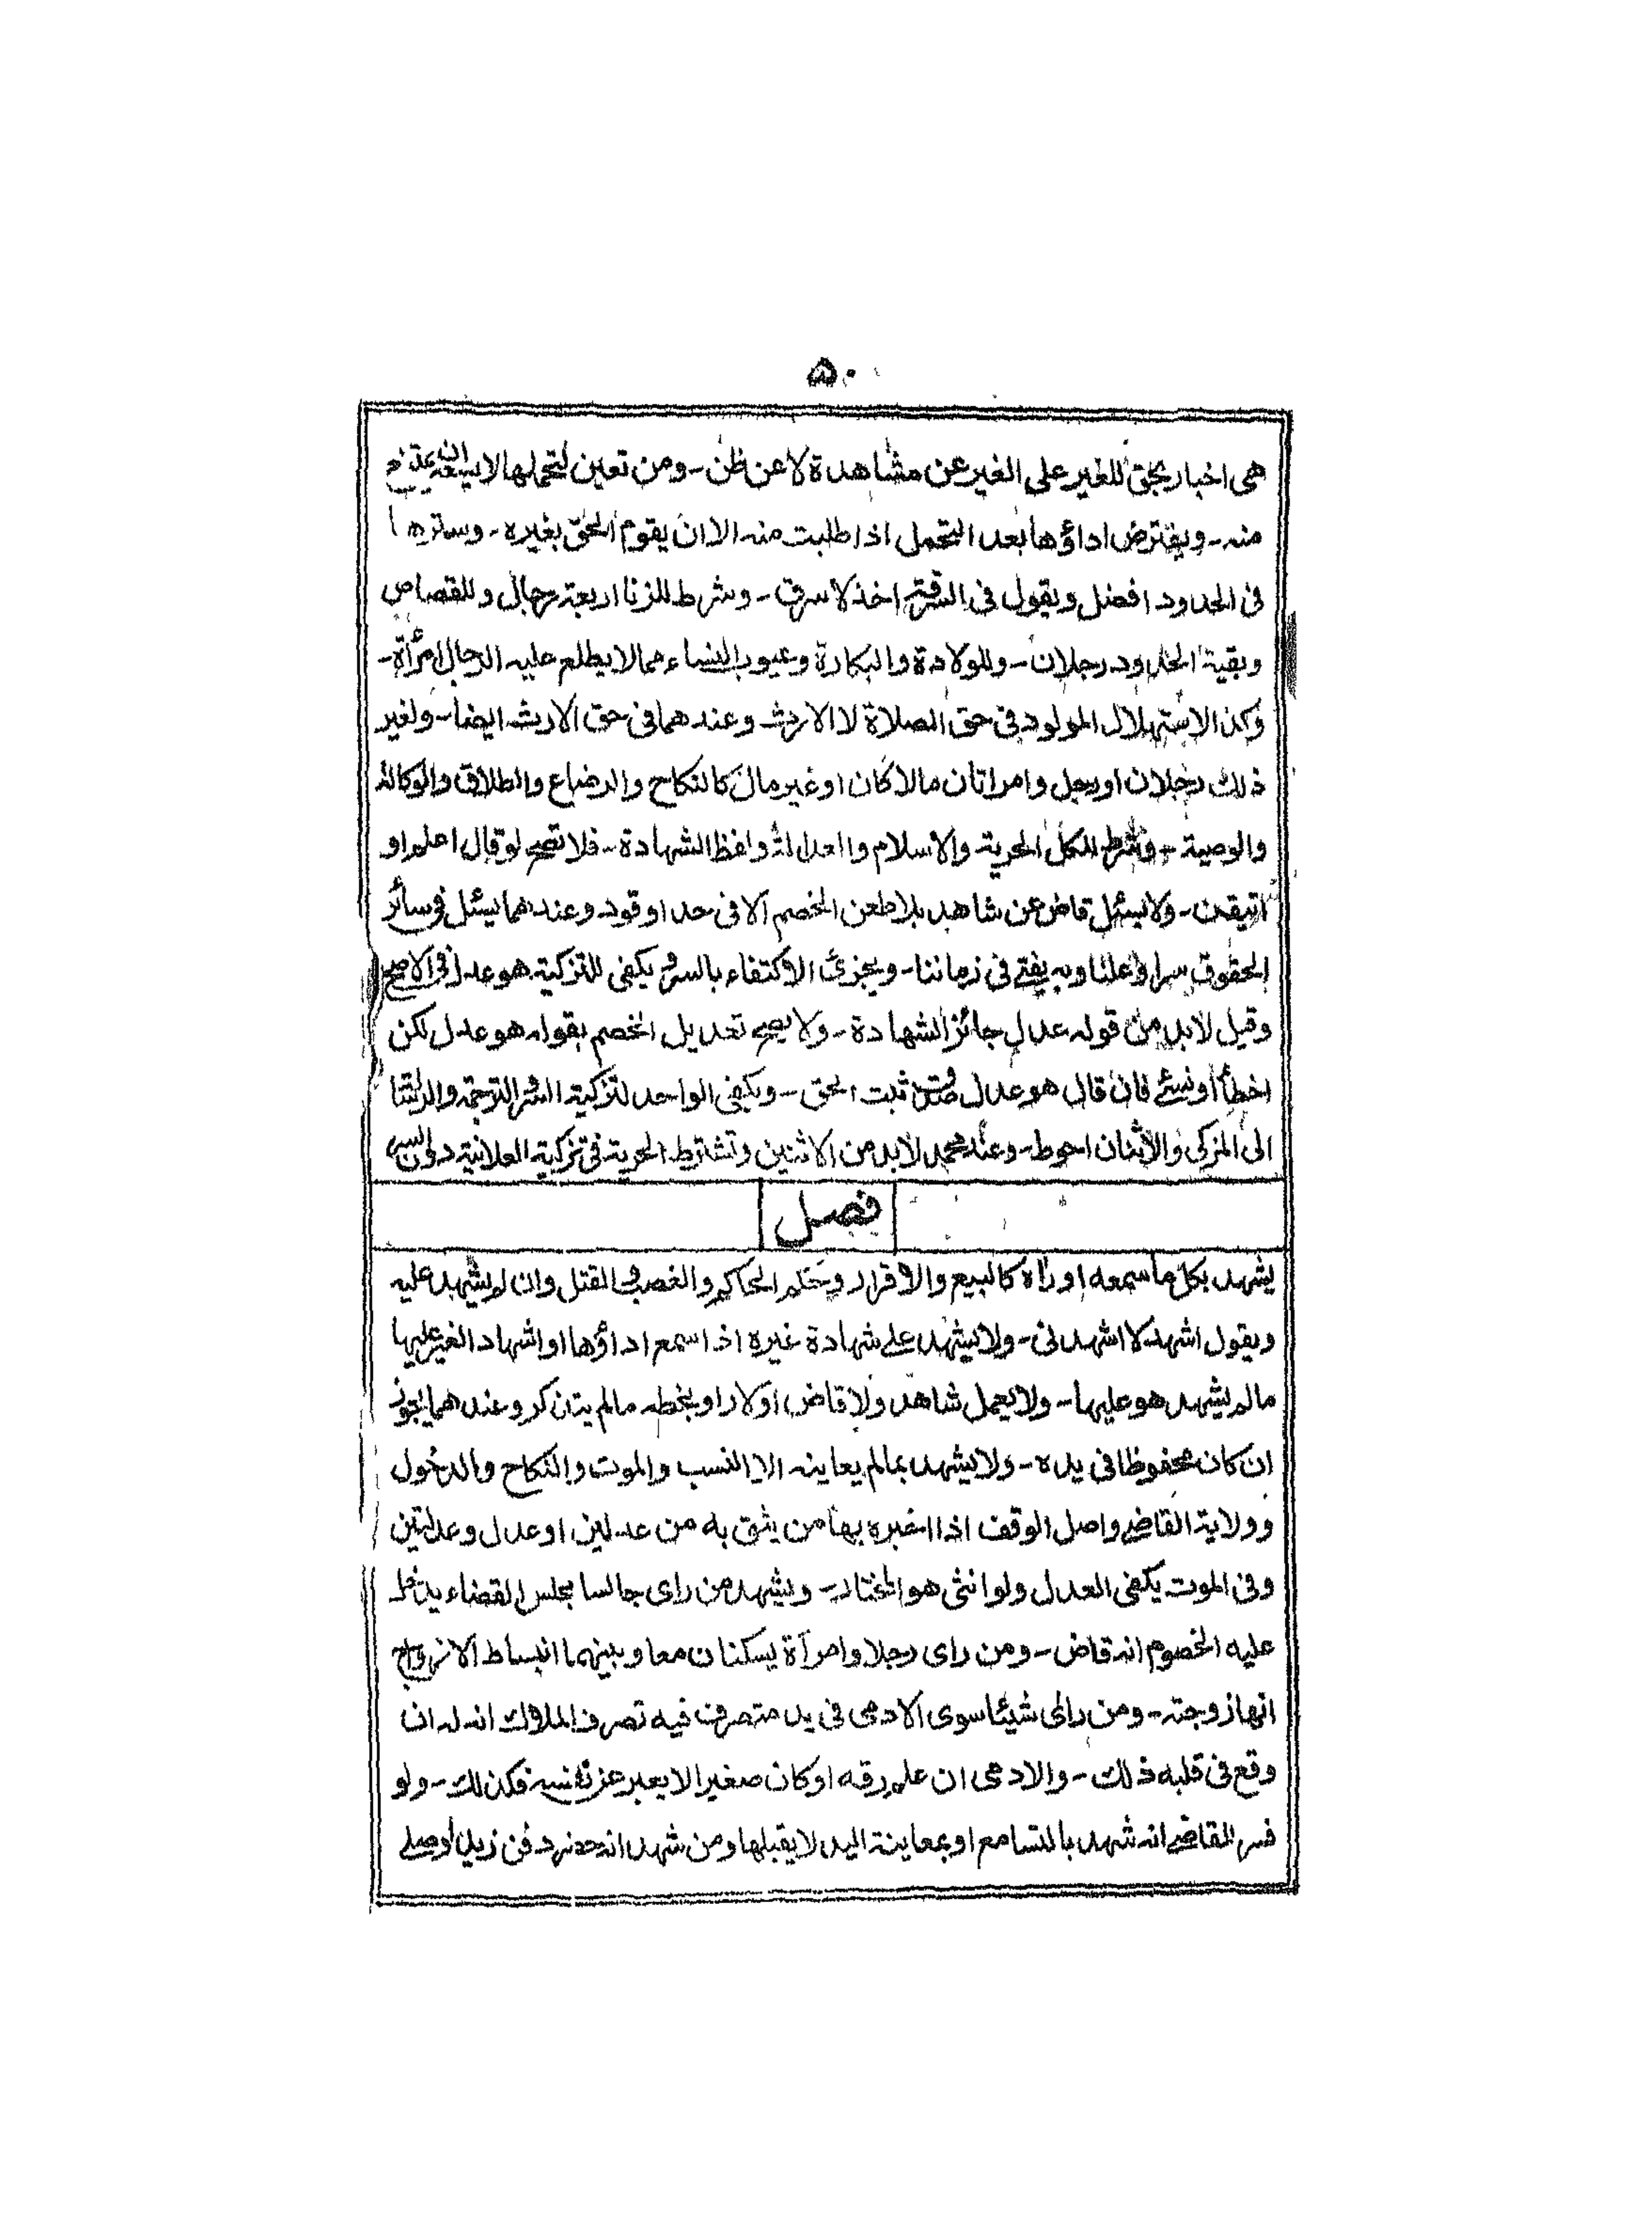 ۵۰
هی اخبار بحق للغیر علی الغیر عن مشاهدة لا عن ظن - ومن تعین لتحملها لا یسعه ان یمتنع
منه - ویفترض اداؤها بعد التحمل اذا طلبت منه الا ان یقوم الحق بغیره - وسترها
فی الحدود افضل ویقول فی السرقة اخذ لا سرق - وشرط للزنا اربعة رجال وللقصاص
وبقیة الحدود رجلان - وللولادة والبکارة وعیوب النساء مما لا یطلع علیه الرجال امرأة -
وکذا لاستهلال المولود فی حق الصلاة لا الارث وعندهما فی حق الارث ایضا - ولغیر
ذلك رجلان او رجل وامراتان مالا کان او غیر مال کالنکاح والرضاع والطلاق والوکالة
والوصیة - وشرط للکل الحریة والاسلام والعدالة ولفظ الشهادة - فلا تصح لو قال اعلم او
اتیقن - ولا یسئل قاض عن شاهد بلا طعن الخصم الا فی حد او قود وعندهما یسئل فی سائر
الحقوق سرا وعلنا وبه یفتی فی زماننا - ویجزئ الاکتفاء بالسر ویکفی للتزکیة هو عدل فی الاصح
وقیل لا بد من قوله عدل جائز الشهادة - ولا یصح تعدیل الخصم بقوله هو عدل لکن
اخطأ او نسی فان قال هو عدل صدق ثبت الحق - ویکفی الواحد لتزکیة السر والترجمة والرسالة
الی المزکی والاثنان احوط - وعند محمد لا بد من الاثنین وتشترط الحریة فی تزکیة العلانیة دون السر
فصل
یشهد بکل ما سمعه او رآه کالبیع والاقرار وحکم الحاکم والغصب والقتل وان لم یشهد علیه
ویقول اشهد لا اشهدنی - ولا یشهد علی شهادة غیره اذا سمع اداؤها او اشهاد الغیر علیها
ما لم یشهد هو علیها - ولا یعمل شاهد ولا قاض ولا راو بخطه مالم یتذکر وعندهما یجوز
ان کان محفوظا فی یده - ولا یشهد بمالم یعاینه الا النسب والموت والنکاح والدخول
وولایة القاضی واصل الوقف اذا اخبره بها من یثق به من عدلین او عدل وعدلتین
وفی الموت یکفی العدل ولو انثی هو المختار - ویشهد من رای جالسا مجلس القضاء یدخل
علیه الخصوم انه قاض - ومن رای رجلا وامرآة یسکنان معا وبینهما انبساط الازواج
انها زوجته - ومن رای شیئا سوی الادمی فی ید متصرف فیه تصرف الملاك انه له ان
وقع فی قلبه ذلك - والادمی ان علم رقه او کان صغیرا لا یعبر عن نفسه فکذلك - ولو
فسر للقاضی انه شهد بالتسامع او بمعاینة الید لا یقبلها ومن شهد انه حضر دفن زید او صلی